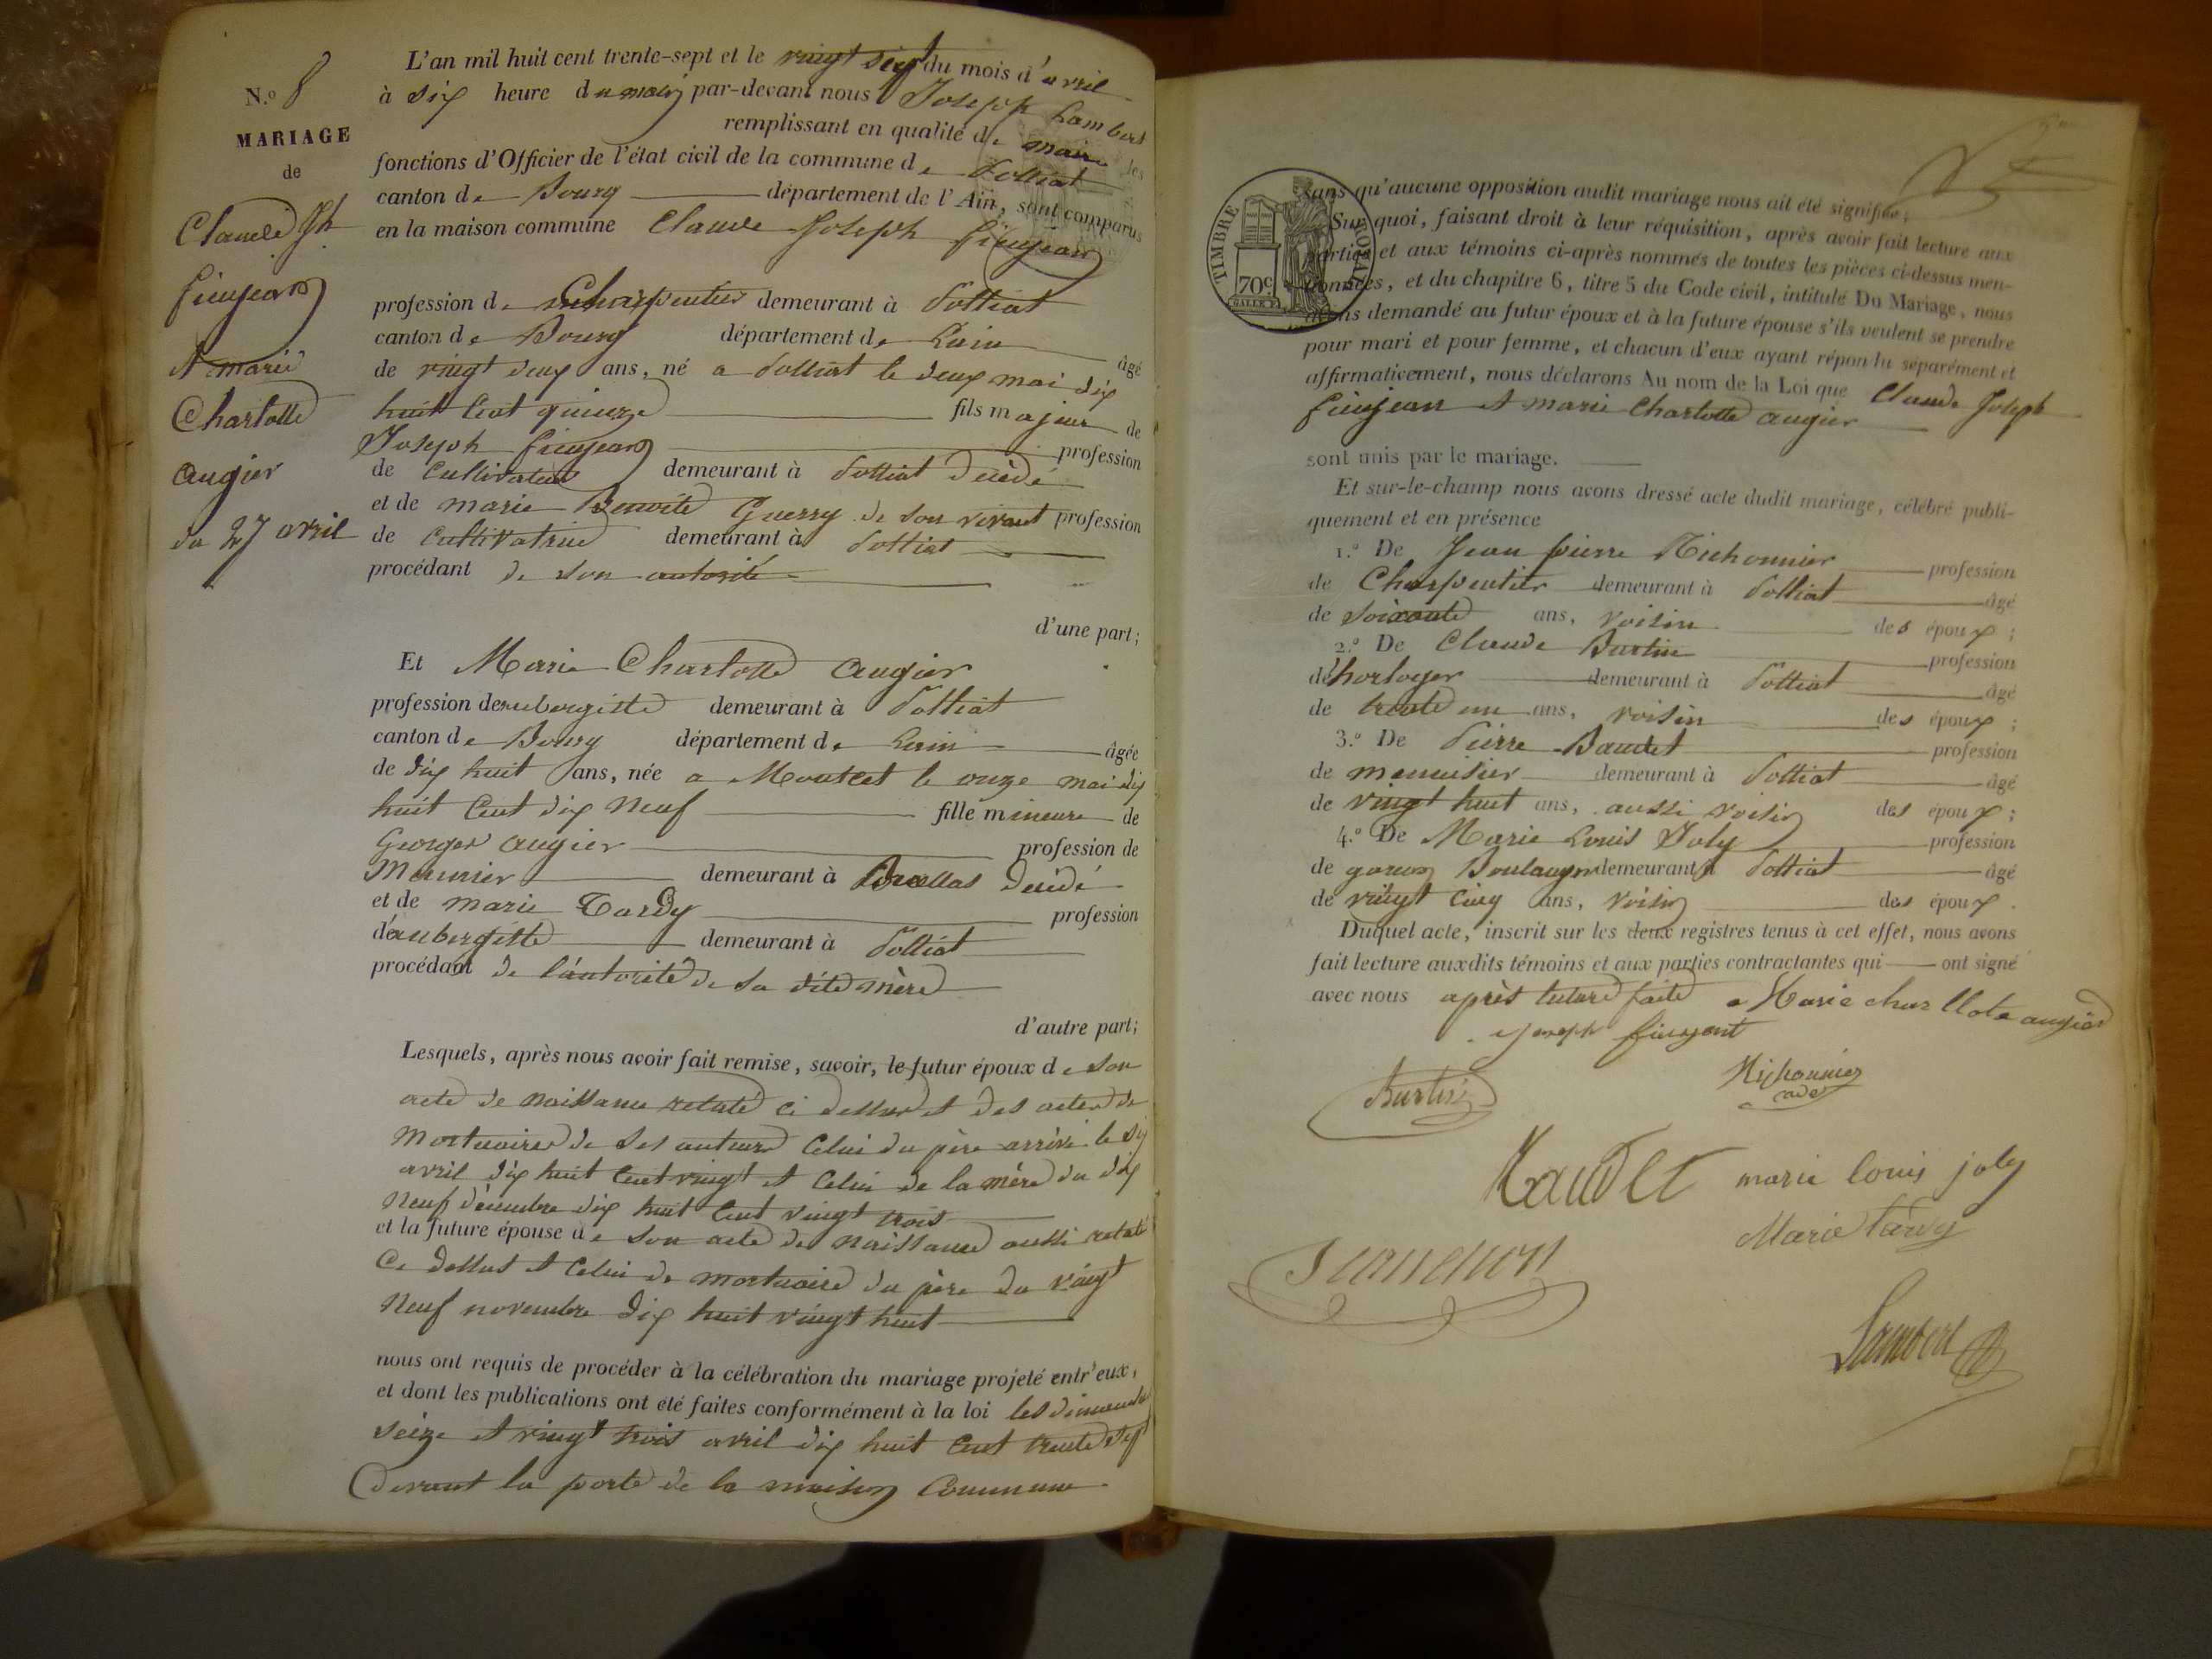 N.o 8
MARIAGE
de
Claude Jh
fieujean
et marie
Charlotte
augier
du 27 avril
L'an mil huit cent trente-sept et le vingt sept du mois d'avril
à six heure du matin par-devant nous Joseph Lambert
remplissant en qualité de maire les
fonctions d'Officier de l'état civil de la commune de Polliat
canton de Bourg département de l'Ain, sont comparus
en la maison commune Claude Joseph fieujean
profession de Charpentier demeurant à Polliat
canton de Bourg département de L'ain âgé
de vingt deux ans, né a Polliat le deux mai dix
huit Cent quinze fils majeur de
Joseph fieujean profession
de Cultivateur demeurant à Polliat décédé
et de marie Benoite Guerry de son vivant profession
de Cultivatrice demeurant à Polliat
procédant de son autorité
d'une part;
Et Marie Charlotte augier
profession de aubergiste demeurant à Polliat
canton de Bourg département de L'ain âgée
de dix huit ans, née a Montcet le onze mai dix
huit Cent dix Neuf fille mineure de
George augier profession de
Meunier demeurant à Buellas décédé
et de marie Tardy profession
d'aubergiste demeurant à Polliat
procédant de l'autorité de sa dite mère
d'autre part;
Lesquels, après nous avoir fait remise, savoir, le futur époux de son
acte de naissance relaté ci dessus et des actes de
mortuaires de ses auteurs Celui du père arrivé le six
avril dix huit Cent vingt et Celui de la mère du dix
Neuf décembre dix huit Cent vingt trois
et la future épouse de son acte de naissance aussi relaté
Ce dessus et Celui de mortuaire du père du vingt
Neuf novembre dix huit vingt huit
nous ont requis de procéder à la célébration du mariage projeté entr'eux,
et dont les publications ont été faites conformément à la loi les dimanches
seize et vingt trois avril dix huit Cent trente sept
devant la porte de la maison Commune
TIMBRE ROYAL
70c
sans qu'aucune opposition audit mariage nous ait été signifiée;
Sur quoi, faisant droit à leur réquisition, après avoir fait lecture aux
parties et aux témoins ci-après nommés de toutes les pièces ci-dessus men-
tionnées, et du chapitre 6, titre 5 du Code civil, intitulé Du Mariage, nous
avons demandé au futur époux et à la future épouse s'ils veulent se prendre
pour mari et pour femme, et chacun d'eux ayant répondu séparément et
affirmativement, nous déclarons Au nom de la Loi que Claude Joseph
fieujean et marie Charlotte augier
sont unis par le mariage.
Et sur-le-champ nous avons dressé acte dudit mariage, célébré publi-
quement et en présence
1.o De Jean pierre Michonnier profession
de Charpentier demeurant à Polliat âgé
de soixante ans, voisin des époux;
2.o De Claude Burtin profession
d'horloger demeurant à Polliat âgé
de trente un ans, voisin des époux;
3.o De Pierre Baudet profession
de menuisier demeurant à Polliat âgé
de vingt huit ans, aussi voisin des époux;
4.o De Marie Louis Joly profession
de garçon Boulanger demeurant à Polliat âgé
de vingt Cinq ans, voisin des époux.
Duquel acte, inscrit sur les deux registres tenus à cet effet, nous avons
fait lecture auxdits témoins et aux parties contractantes qui ont signé
avec nous après lecture faite Marie charllote augier
joseph
Burtin
Michonnier
Baudet marie louis joly
Marie tardy
Lambert